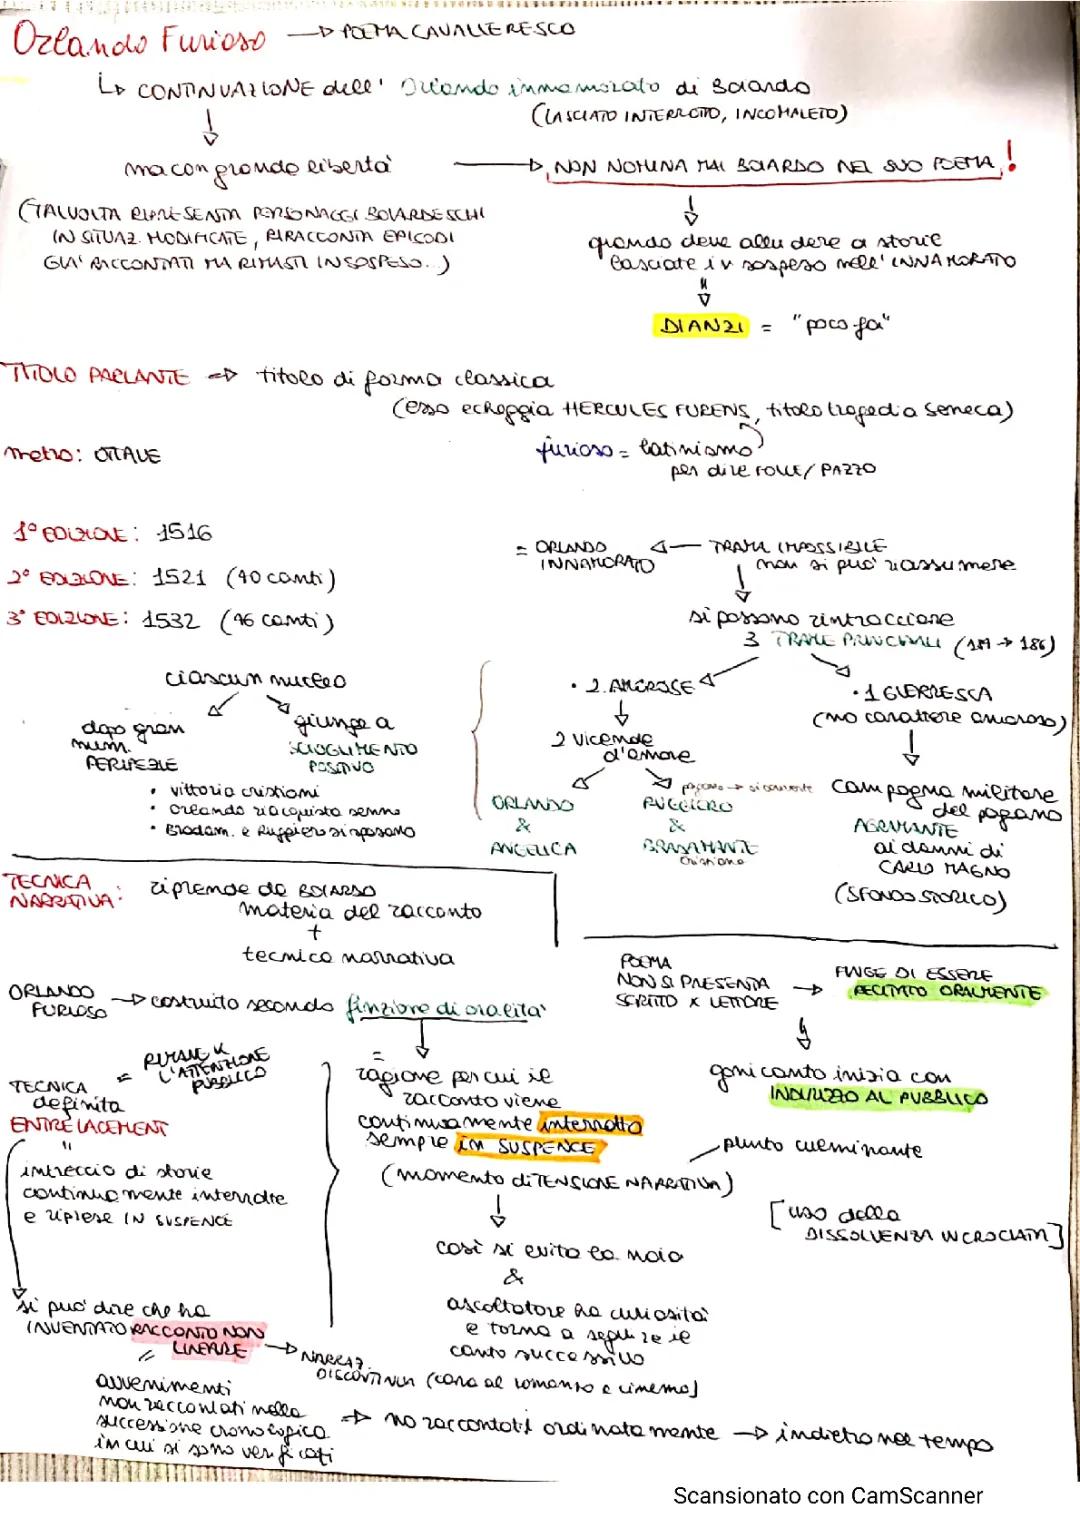 Orlando Furioso → POEMA CAVALLERESCO
↳ CONTINUAZIONE dell' Orlando innamorato di Boiardo
(LASCIATO INTERROTTO, INCOMPLETO)
ma con grande libertà → NON NOMINA MAI BOIARDO NEL SUO POEMA !
(TALVOLTA RIPRESENTA PERSONAGGI BOIARDESCHI
IN SITUAZ. MODIFICATE, RIRACCONTA EPISODI
GIA' RACCONTATI MA RIMASTI IN SOSPESO..)
quando deve alludere a storie
lasciate in sospeso nell'INNAMORATO
DIANZI = "poco fa"
TITOLO PARLANTE => titolo di forma classica
(esso echeggia HERCULES FURENS, titolo tragedia Seneca)
furioso = latinismo
per dire FOLLE/PAZZO
metro: OTTAVE
1° EDIZIONE: 1516
2° EDIZIONE: 1521 (40 canti)
3° EDIZIONE: 1532 (46 canti)
= ORLANDO
INNAMORATO
← TRAMA IMPOSSIBILE
non si può riassumere
si possono rintracciare
3 TRAME PRINCIPALI
ciascun nucleo
dopo gran
num.
PERIPEZIE
giunge a
SCIOGLIMENTO
POSITIVO
• vittoria cristiani
• Orlando riacquista senno
• Bradam. e Ruggiero si sposano
• 2. AMOROSE
2 vicende
d'amore
ORLANDO
&
ANGELICA
pagano →
RUGGIERO
&
BRADAMANTE
cristiana
• 1 GUERRESCA
(no carattere amoroso)
campagna militare
del pagano
AGRAMANTE
ai danni di
CARLO MAGNO
(SFONDO STORICO)
TECNICA
NARRATIVA:
riprende da BOIARDO
materia del racconto
+
tecnica narrativa
ORLANDO
FURIOSO
→ costruito secondo finzione di oralità
POEMA
NON SI PRESENTA
SCRITTO X LETTORE
→ FINGE DI ESSERE
RECITATO ORALMENTE
ogni canto inizia con
INDIRIZZO AL PUBBLICO
TECNICA
definita
ENTRELACEMENT
=
L'ATTENZIONE
PUBBLICO
"
intreccio di storie
continuamente interrotte
e riprese IN SUSPENCE
=
ragione per cui il
racconto viene
continuamente interrotto
sempre in SUSPENCE
punto culminante
(momento di TENSIONE NARRATIVA)
[uso della
DISSOLVENZA INCROCIATA]
così si evita la noia
&
ascoltatore ha curiosità
e torna a seguire il
canto successivo
si può dire che ha
INVENTATO RACCONTO NON
LINEARE
→ NARRAZ.
DISCONTINUA (cara al romanzo e cinema)
=
avvenimenti
non raccontati nella
successione cronologica
in cui si sono verificati
=> no raccontati ordinatamente → indietro nel tempo
Scansionato con CamScanner